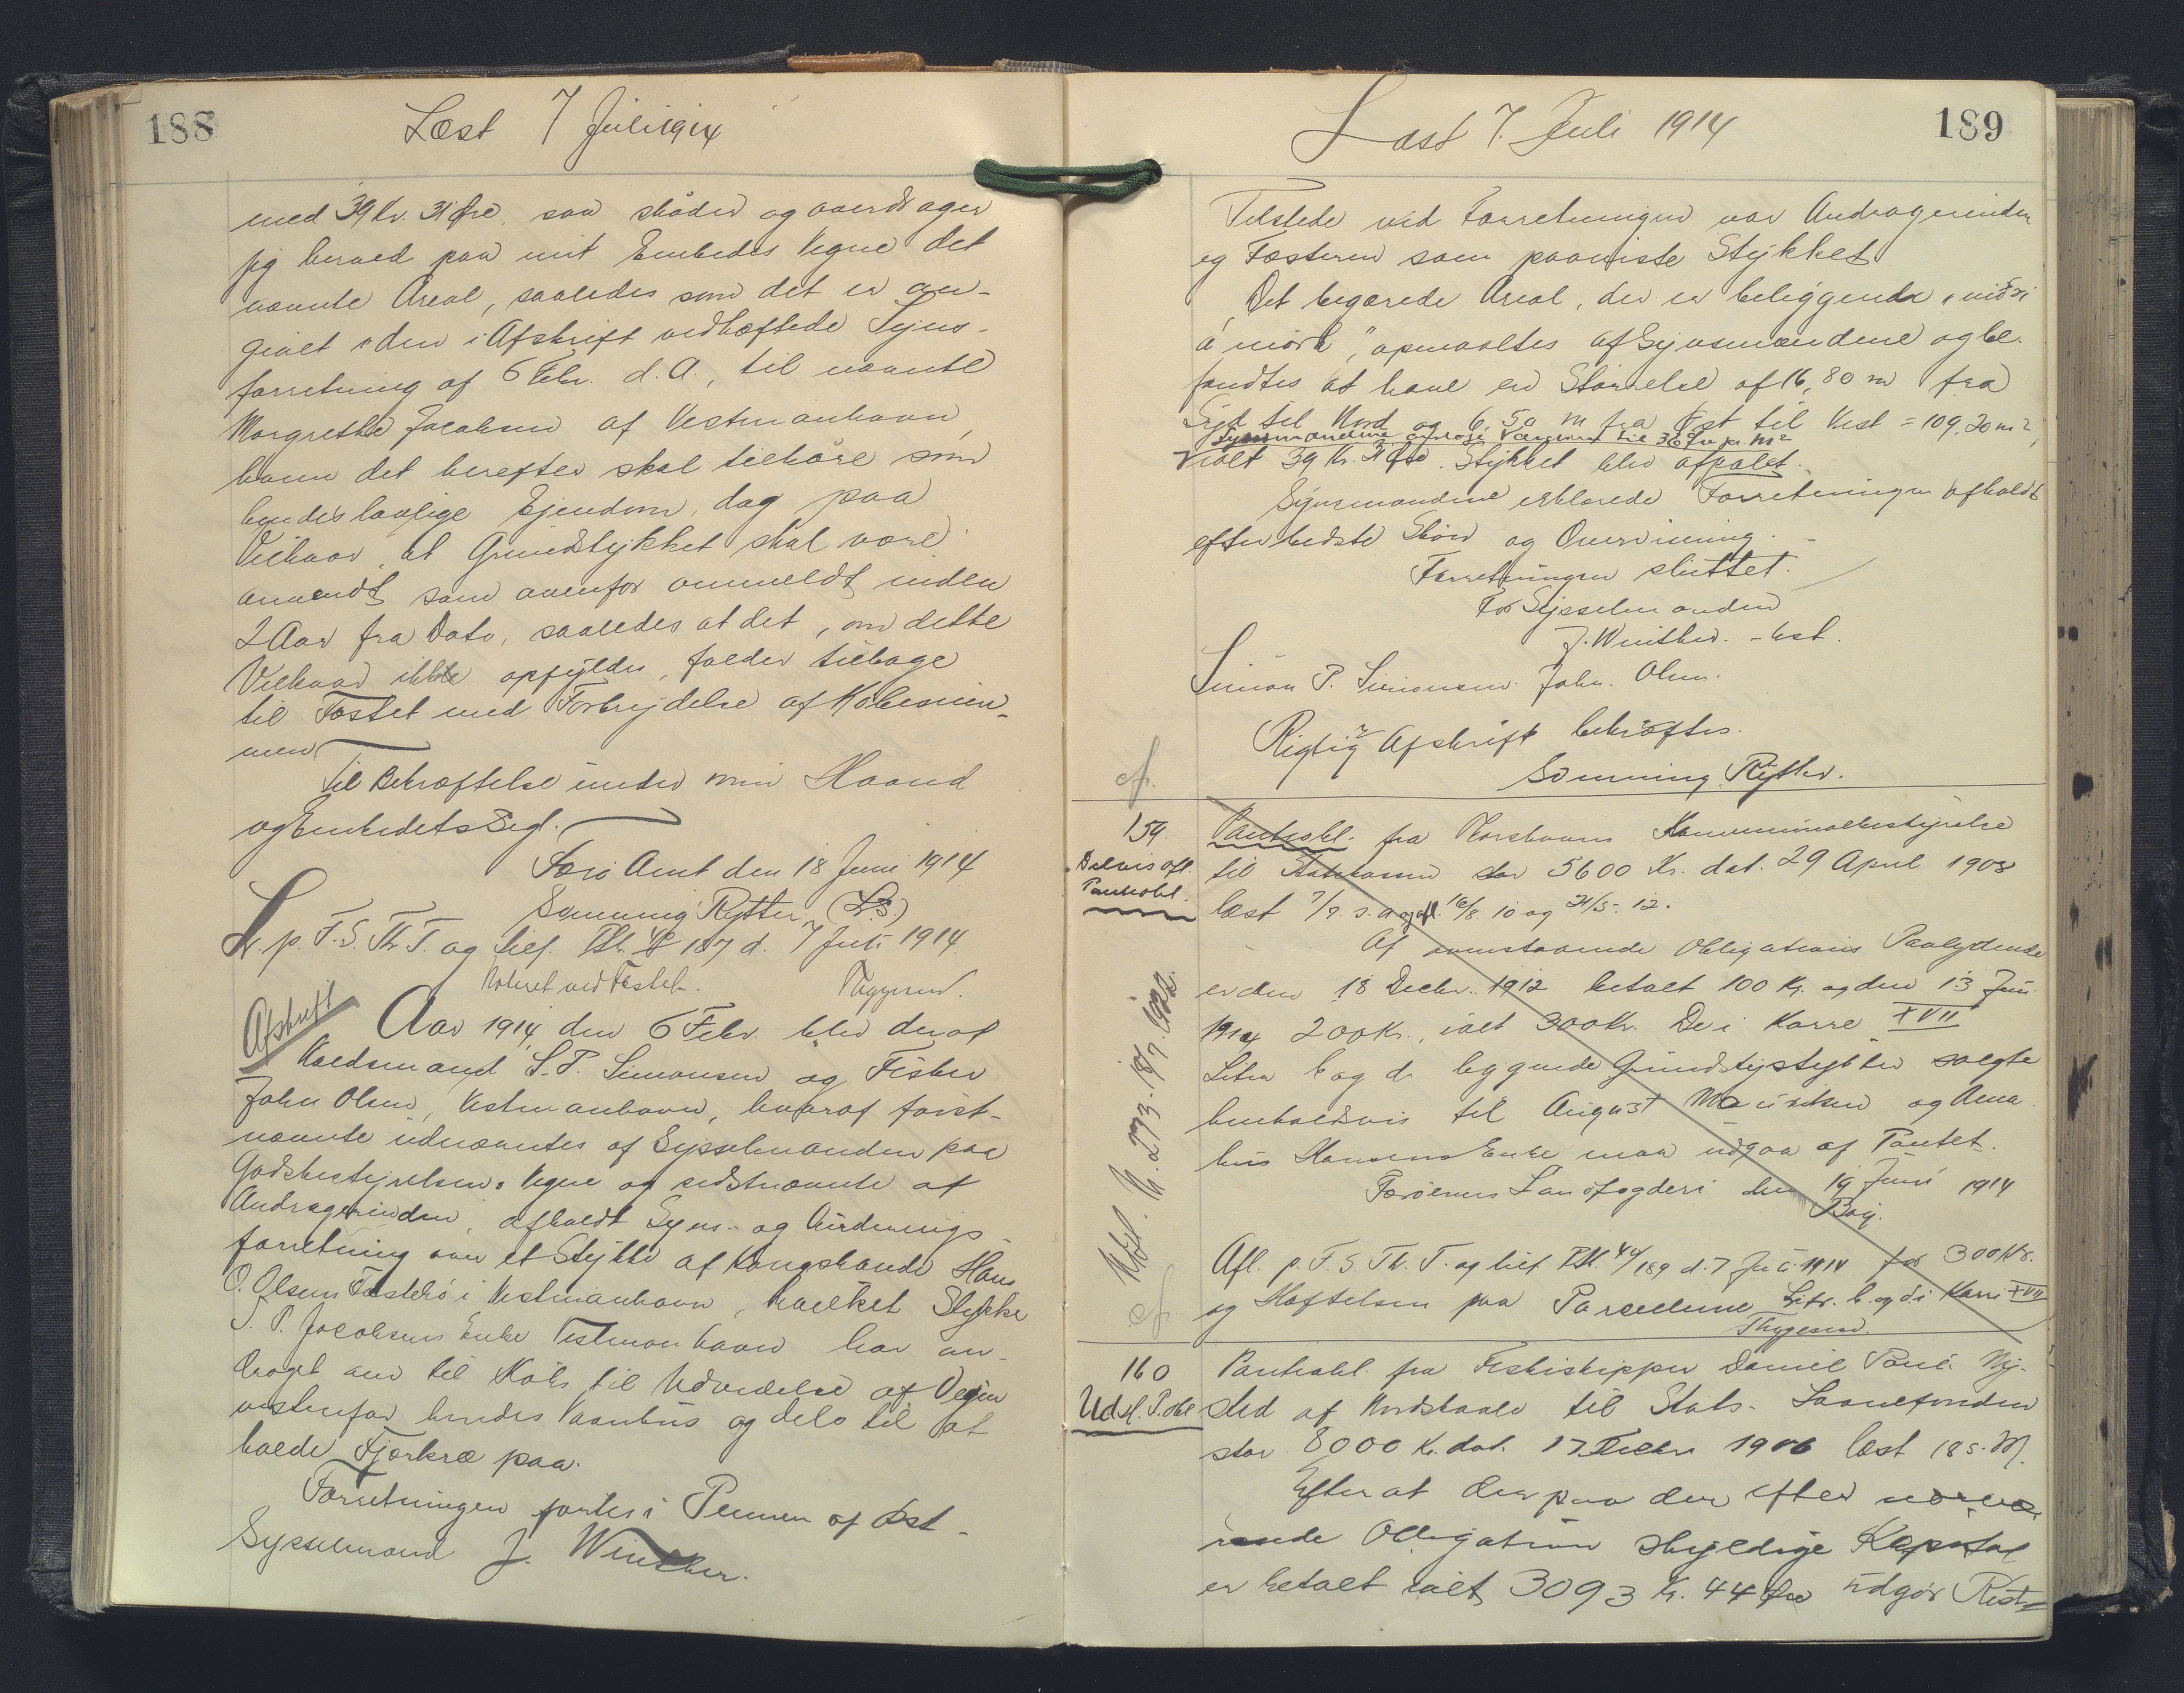 188
Læst 7 Juli 1914
med 39 Kr. 31 Øre, saa skøder og overdrager
jeg herved paa mit Embedes Vegne det
nævnte Areal, saaledes som det er an-
givet i den i Afskrift vedhæftede Syns-
forretning af 6 Febr. d.A., til nævnte
Margrethe Jacobsen af Vestmanhavn,
hvem det herefter skal tilhøre som
hendes lovlige Ejendom, dog paa
Vilkaar, at Grundstykket skal være
anvendt som ovenfor ommeldt inden
2 Aar fra Dato, saaledes at det, om dette
Vilkaar ikke opfyldes, falder tilbage
til Fæstet med Forbrydelse af Købesum-
men
Til Bekræftelse under min Haand
og Embedets Segl.
Færø Amt den 18 Juni 1914
Svenning Rytter (LS)
L. p. F. S. Th. T. og tilf. Pk. 187 d. 7 Juli 1914.
Noteret ved Fæstet. Thygesen.
Afskrift
Aar 1914 den 6 Febr. blev der af
Voldsmand S. P. Simonsen og Fisker
John Olsen, Vestmanhavn, hvoraf først-
nævnte udnævntes af Sysselmanden paa
Godsbestyrelsens Vegne og sidstnævnte af
Andragerinden, afholdt Syns- og Vurderings-
forretning over et Stykke af Kongsbonde Hans
O. Olsens Fæstejord i Vestmanhavn, hvilket Stykke
J. P. Jacobsens Enke Vestmanhavn har an-
draget om til Køb, til Udvidelse af Vejen
vestenfor hendes Vaanhus og dels til at
holde Fjerkræ paa.
Forretningen førtes i Pennen af Ast-
Sysselmand J. Winther.
189
Læst 7. Juli 1914
Tilstede ved Forretningen var Andragerinden
og Fæsteren som paaviste Stykket
Det begærede Areal, der er beliggende "niðri
á mørk", opmaaltes af Synsmændene og be-
fandtes at have en Størrelse af 16,80 m fra
Syd til Nord og 6,50 m fra Øst til Vest = 109.20 m²,
Synsmændene ansloge Værdien til 36 Øre pr. M²
ialt 39 Kr. 31 Øre. Stykket blev afpælet.
Synsmændene erklærede Forretningen afholdt
efter bedste Skøn og Overvisning.
Forretningen sluttet.
For Sysselmanden
J. Winther. -kst.
Simon P. Simonsen. John. Olsen.
Rigtig Afskrift bekræftes.
Svenning Rytter.
cfr.
159.
Delvis afl.
Pantobl.
Pantobl. fra Thorshavns Kommunalbestyrelse
til Statskassen stor 5600 Kr. dat. 29 April 1908
læst 7/9. s.A. og afl. 16/8. 10 og 21/5. 12.
Af omstaaende Obligations Paalydende
er den 18 Decbr. 1912 betalt 100 Kr. og den 13 Juni
1914 200 Kr., ialt 300 Kr. De i Karre XVII
Litra b og d liggende Grundstystykker solgte
henholdsvis til August Mouritsen og Anna
Hansens Enke maa udgaa af Pantet.
Færøernes Landfogderi den 19 Juni 1914
Bøg.
Afl. p. F. S. Th. T. og tilf. P.K. 40/189 d. 7 Juli 1914 for 300 Kr.
og Hæftelsen paa Parcellerne Litr. b. og d i Karre XVII
Thygesen.
Udsl. N. 273. 18/7. 1922.
cfr.
160
Udsl. P. obl
Pantobl. fra Fiskeskipper Daniel Poul Ny-
sted af Nordskaale til Stats-Laanefonden
stor 8000 Kr. dat. 17 Decbr 1906 læst 18 s.M.
Efter at der paa den efter nærvæ-
rende Obligation skyldige Kapital
er betalt ialt 3093 Kr. 44 Øre udgør Rest-